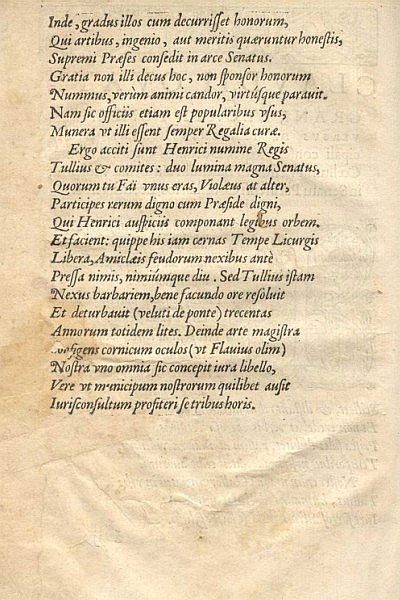 Inde, gradus illos cum decurrisset honorum,
Qui artibus, ingenio, aut meritis quæruntur honestis,
Supremi Præses consedit in arce Senatus.
Gratia non illi decus hoc, non sponsor honorum
Nummus, verùm animi candor, virtúsque parauit.
Nam sic officiis etiam est popularibus vsus,
Munera vt illi essent semper Regalia curæ.
Ergo acciti sunt Henrici numine Regis
Tullius & comites: duo lumina magna Senatus,
Quorum tu Fai vnus eras, Violæus at alter,
Participes rerum digno cum Præside digni,
Qui Henrici auspiciis componant legibus orbem.
Et facient: quippe his iam cernas Tempe Licurgis
Libera, Amiclæis feudorum nexibus antè
Pressa nimis, nimiúmque diu. Sed Tullius istam
Nexus barbariem, bene facundo ore resoluit
Et deturbauit (veluti de ponte) trecentas
Annorum totidem lites. Deinde arte magistra
cornicum oculos (vt Flauius olim)
Nostra vno omnia sic concepit iura libello,
Vere vt municipum nostrorum quilibet ausit
Iurisconsultum profiteri se tribus horis.